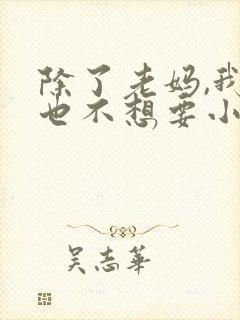 除了老妈,我
也不想要小
吴志華